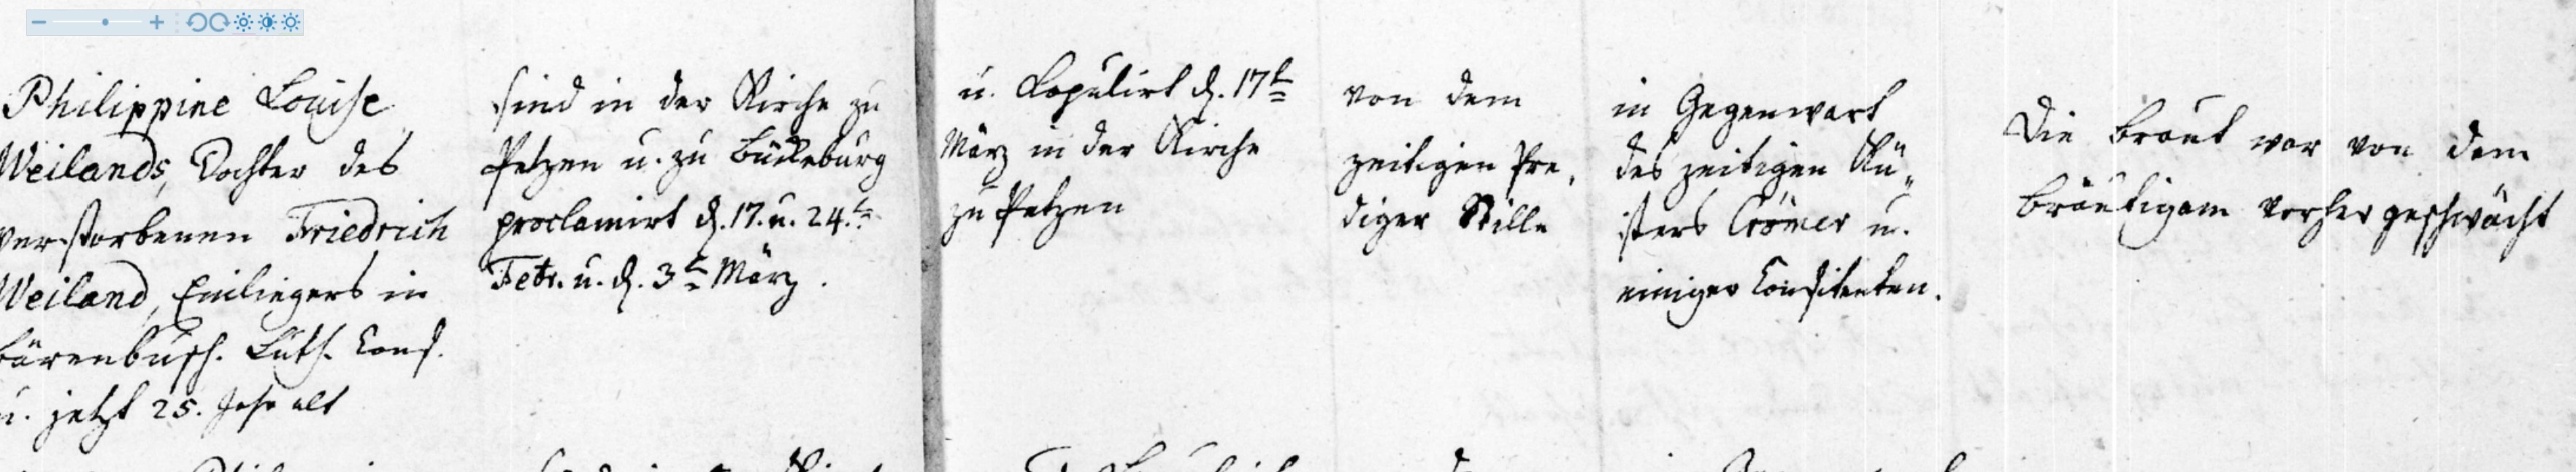 Philippine Louise
Weilands, Tochter des
verstorbenen Friedrich
Weiland, Einliegers in
Bärenbusch. Luth. Conf.
u. jetzt 25. Jahr alt
sind in der Kirche zu
Petzen u. zu Bückeburg
proclamirt d. 17. u. 24.t
Febr. u. d. 3t März.
u. Copulirt d. 17t
März in der Kirche
zu Petzen
von dem
zeitigen Pre,
diger Stille
in Gegenwart
des zeitigen Kü„
sters Crömer u.
einiger Consitenten.
Die Braut war von dem
Bräutigam vorher geschwächt